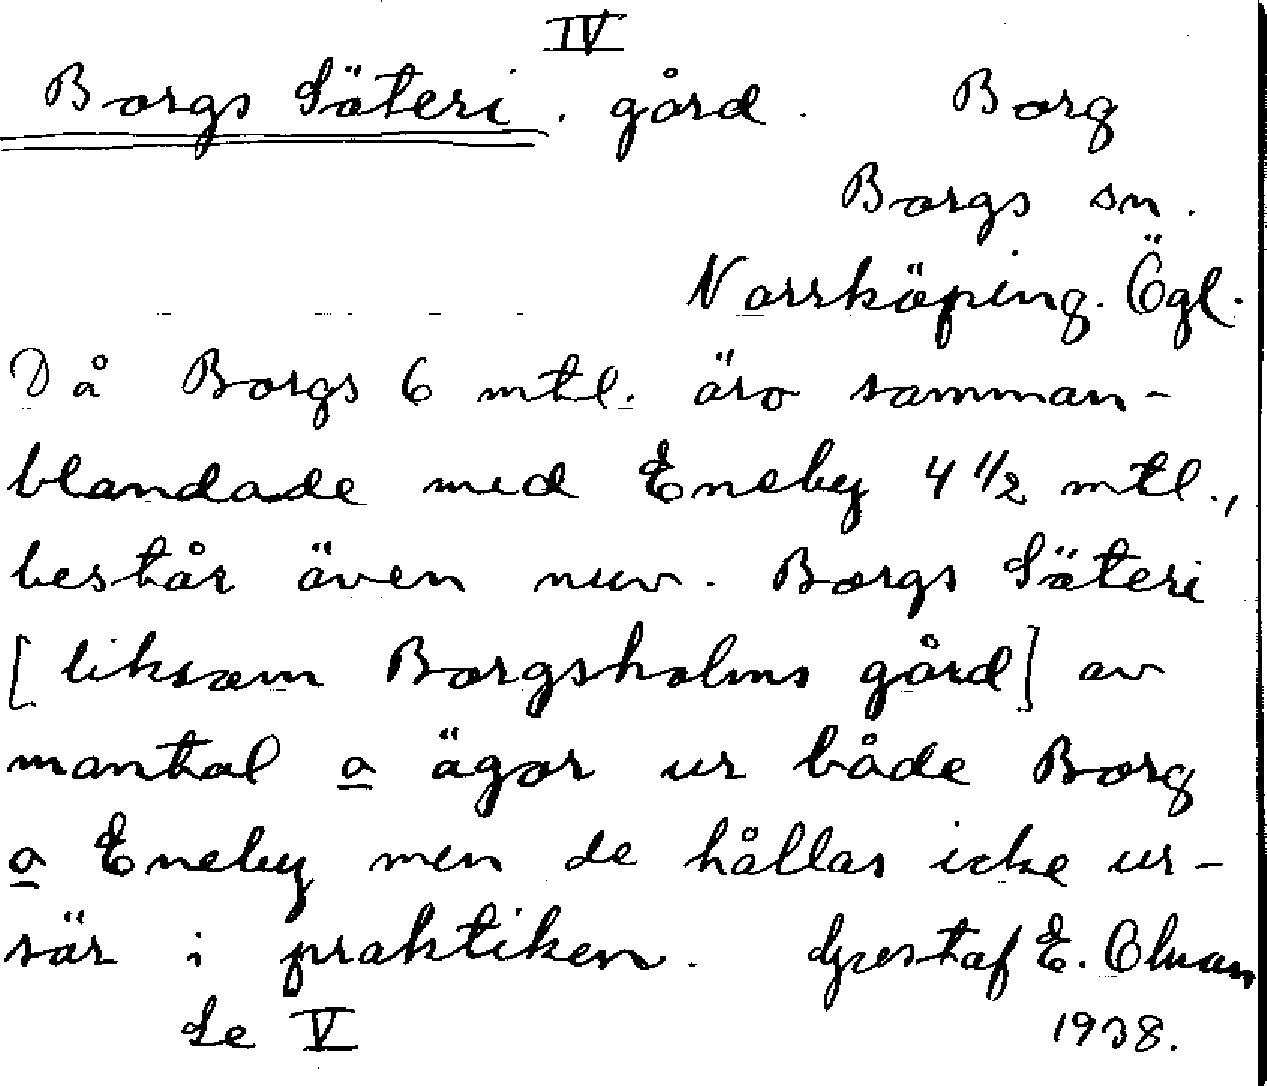 IV
Borgs Säteri. gård. Borg
Borgs sn.
Norrköping. Ögl.
Då Borgs 6 mtl. äro samman-
blandade med Eneby 4 1/2 mtl.,
består även nuv. Borgs Säteri
[liksom Borgsholms gård] av
mantal o ägor ur både Borg
o Eneby men de hållas icke ur-
sär i praktiken. Gustaf E. Olman
Se V 1938.